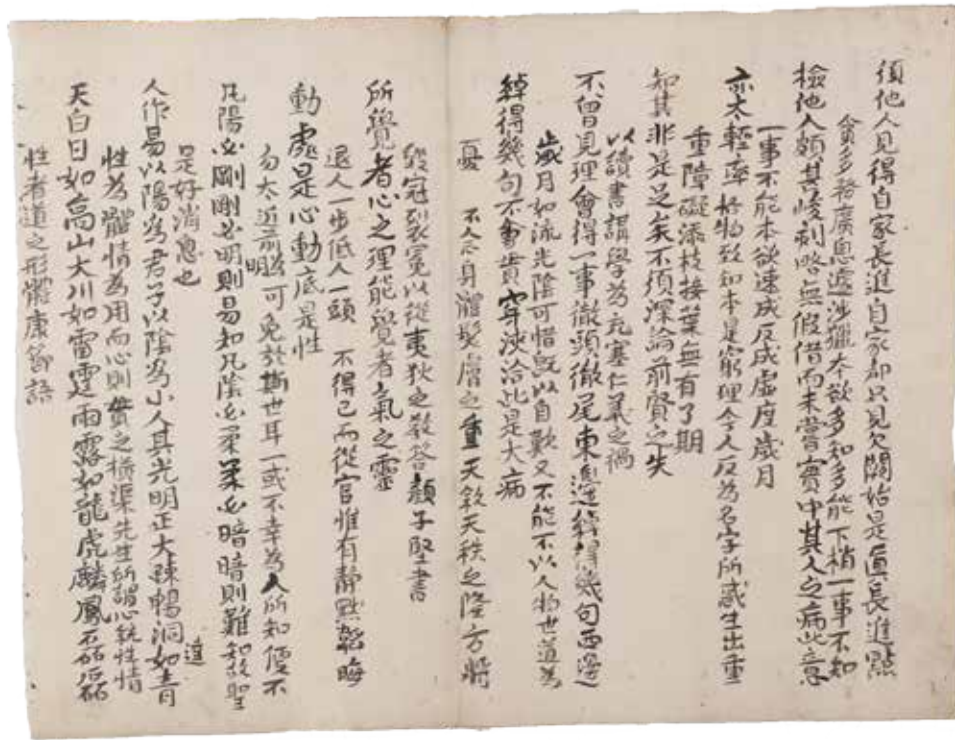 須他人見得自家長進自家却只見欠闕始是眞長進點
貪多務廣怱遽涉獵本欲多知多能下梢一事不知
檢他人頗其峻刻略無假借而未嘗實中其人之病此意
一事不能本欲速成反成虛度歲月
亦太輕率 格物致知本是窮理今人反為名字所惑生出重
重障礙添枝接葉無有了期
知其非是足矣不須深論前賢之失
以讀書講學為充塞仁義之禍
不曾見理會得一事徹頭徹尾東邊綽得幾句西邊
歲月如流光陰可惜旣以自歎又不能不以人物世道為
綽得幾句不會貫穿浹洽此是大病
憂 不念身體髮膚之重天敍天秩之隆方將
毀冠裂冕以從夷狄之敎答顔子堅書
所覺者心之理能覺者氣之靈
退人一步低人一頭 不得已而從官惟有靜默韜晦
動處是心動底是性
勿太近前明 可免於斯世耳一或不幸為人所知便不
凡陽必剛剛必明明則易知凡陰必柔柔必暗暗則難知故聖
是好消息也
人作易以陽為君子以陰為小人其光明正大踈暢洞達如青
性為體情為用而心則貫之橫渠先生所謂心統性情
天白日如高山大川如雷霆雨露如龍虎麟鳳磊磊
性者道之形體康節語